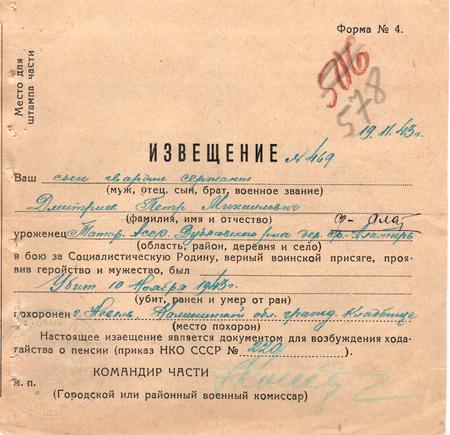 Форма № 4.
Место для
штампа части
506
578
19.11.43г.
ИЗВЕЩЕНИЕ №469
Ваш сын гвардии сержант
(муж, отец, сын, брат, военное звание)
Дмитриев Петр Михаилович
(фамилия, имя и отчество)
уроженец Татар. АССР. района дер.
(область, район, деревня и село)
в бою за Социалистическую Родину, верный воинской присяге, проя-
вив геройство и мужество, был
Убит 10 Ноября 1943г.
(убит, ранен и умер от ран)
похоронен г. Невель, Калининской обл. гражд. кладбище
(место похорон)
Настоящее извещение является документом для возбуждения хода-
тайства о пенсии (приказ НКО СССР № 220)
КОМАНДИР ЧАСТИ
м. п.
(Городской или районный военный комиссар)